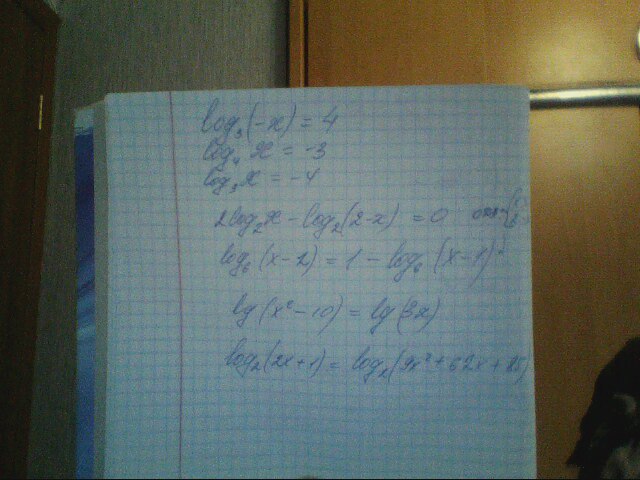 log₃(-x) = 4
log₄ x = -3
log₃ x = -4
2log₂ x - log₂(2-x) = 0
log₆(x-2) = 1 - log₆(x-1)
lg(x²-10) = lg(3x)
log₂(2x+1) = log₂(9x²+62x+85)